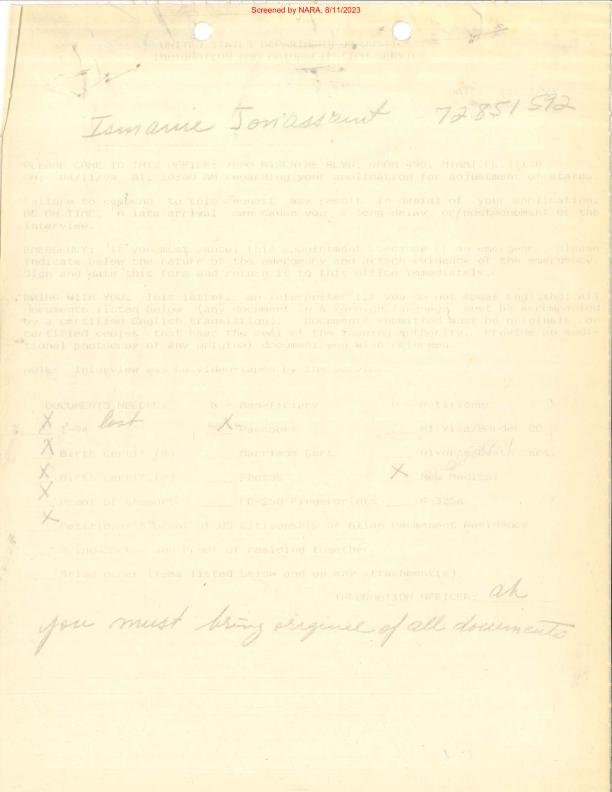 Screened by NARA, 8/11/2023
UNITED STATES DEPARTMENT OF JUSTICE
IMMIGRATION AND NATURALIZATION SERVICE
DATE
Ismanie Jonassaint 72 851 592
PLEASE COME TO THIS OFFICE: 7880 BISCAYNE BLVD, ROOM MIAMI, FL
ON: 04/11/94 AT: 10:00 AM regarding your application for adjustment of status.
Failure to respond to this request may result in denial of your application.
BE ON TIME. A late arrival can cause you a long delay or postponement of the
interview.
EMERGENCY: If you must cancel this appointment because of an emergency, please
indicate below the nature of the emergency and attach evidence of the emergency.
Sign and date this form and return it to this office immediately.
BRING WITH YOU: This letter, an interpreter (if you do not speak English), all
documents listed below (any document in a foreign language must be accompanied
by a certified English translation). Documents submitted must be originals or
certified copies that bear the seal of the issuing authority. Provide an addi-
tional photocopy of any original document you wish returned.
NOTE: Interview may be videotaped by the service.
DOCUMENTS NEEDED: B - Beneficiary P - Petitioner
X I-94 lost X Passport
X Birth Certif. Marriage Cert. Divorce/Death Cert.
X Birth Certif. Photos X New Medical
X Proof of FD-258 Fingerprints G-325A
X Petitioner's proof of US Citizenship or Alien Permanent Residence
and Proof of residing together
Bring other items listed below and on any attachment(s)
INFORMATION OFFICER: ah
you must bring original of all documents